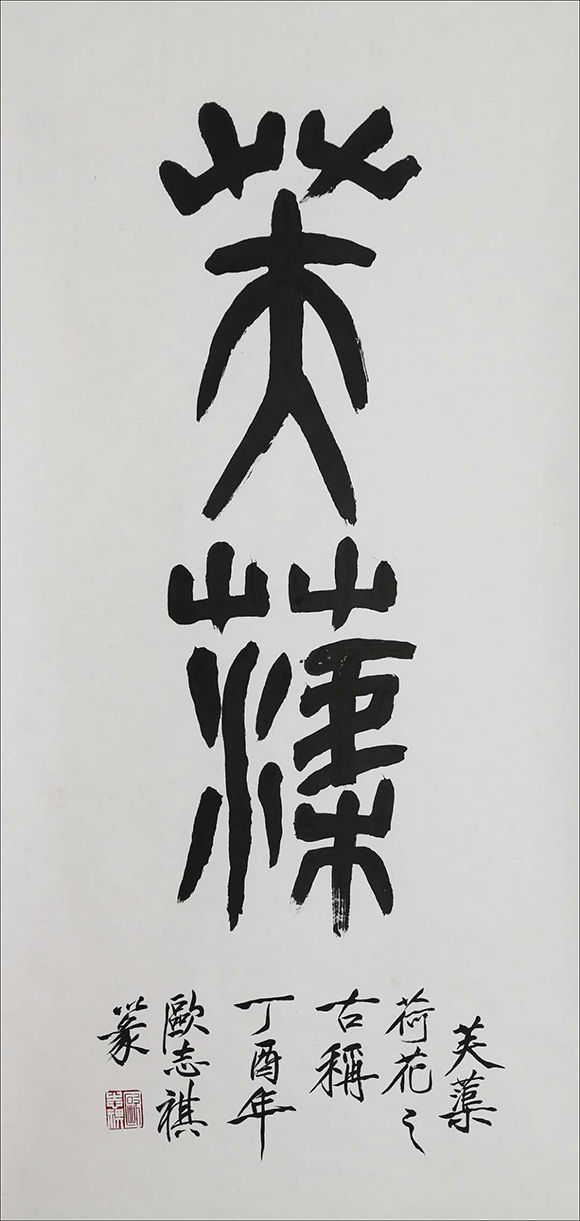 芙蕖
芙蕖
荷花之
古稱
丁酉年
歐志祺
篆